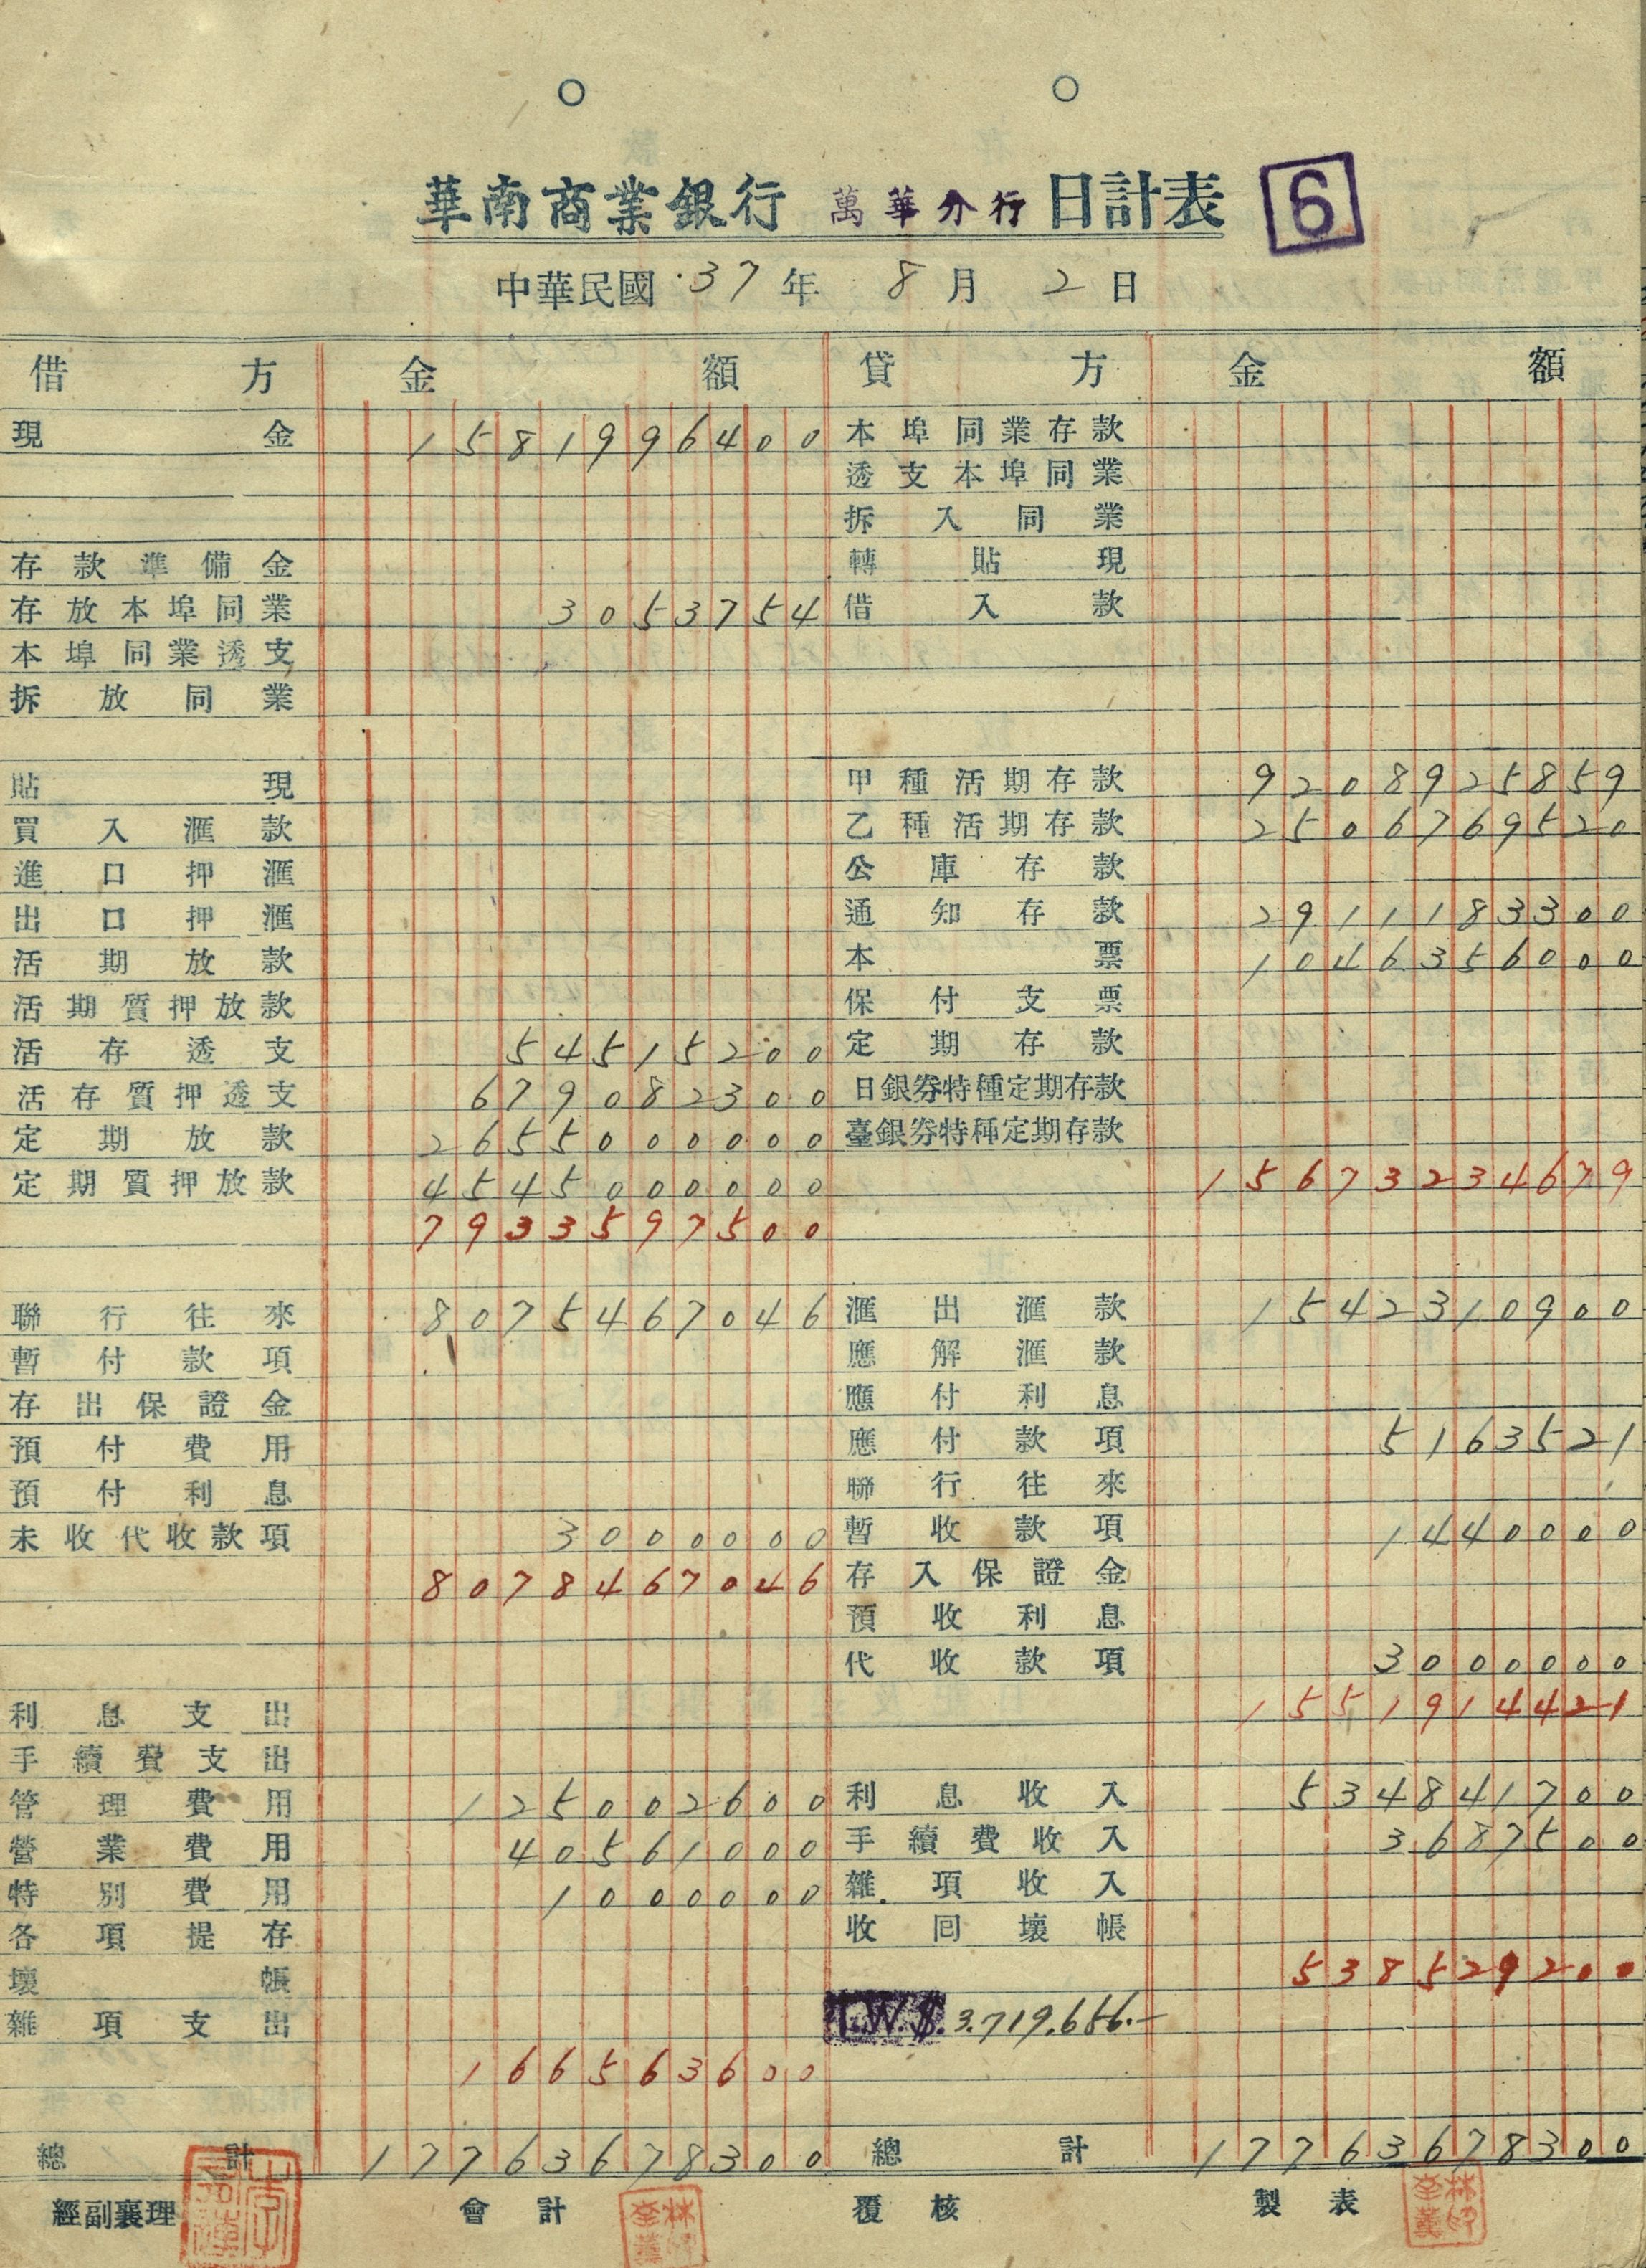 華南商業銀行 萬華分行 日計表 6
中華民國 37 年 8 月 2 日
借方 金額 貸方 金額
現金 1581996400 本埠同業存款
透支本埠同業
拆入同業
存款準備金 轉貼現
存放本埠同業 3053754 借入款
本埠同業透支
拆放同業
貼現 甲種活期存款 9208925859
買入滙款 乙種活期存款 2506769520
進口押滙 公庫存款
出口押滙 通知存款 2911183300
活期放款 本票 1046356000
活期質押放款 保付支票
活存透支 54515200 定期存款
活存質押透支 679082300 日銀券特種定期存款
定期放款 2655000000 臺銀券特種定期存款
定期質押放款 4545000000 15673234679
7933597500
聯行往來 8075467046 滙出滙款 1542310900
暫付款項 應解滙款
存出保證金 應付利息
預付費用 應付款項 5163521
預付利息 聯行往來
未收代收款項 3000000 暫收款項 1440000
8078467046 存入保證金
預收利息
代收款項 3000000
利息支出 1551914421
手續費支出
管理費用 125002600 利息收入 534841700
營業費用 40561000 手續費收入 3687500
特別費用 1000000 雜項收入
各項提存 收回壞帳
壞帳 538529200
雜項支出 T.W.$. 3.719.656.—
166563600
總計 17763678300 總計 17763678300
經副襄理 會計 覆核 製表